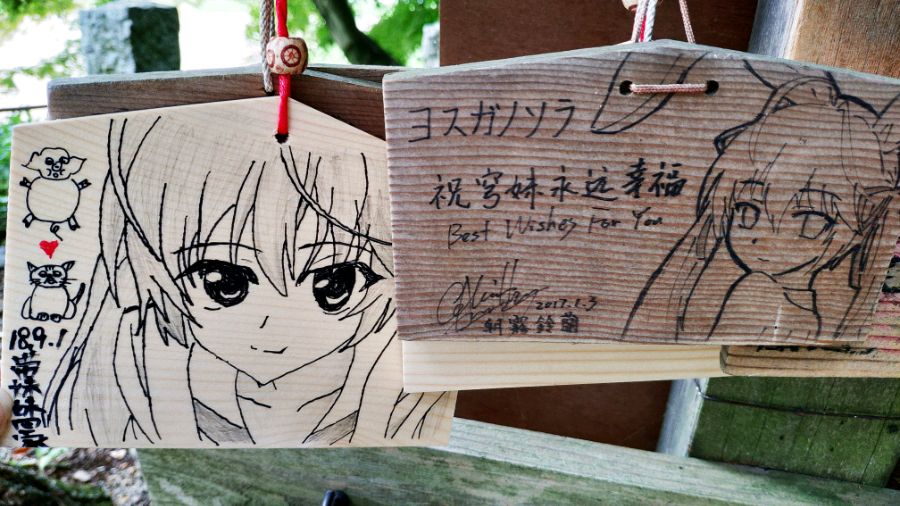 18.9.1
妹妹
ヨスガノソラ
祝穹妹永远幸福
Best Wishes For You
2017.1.3
朝霧鈴蘭